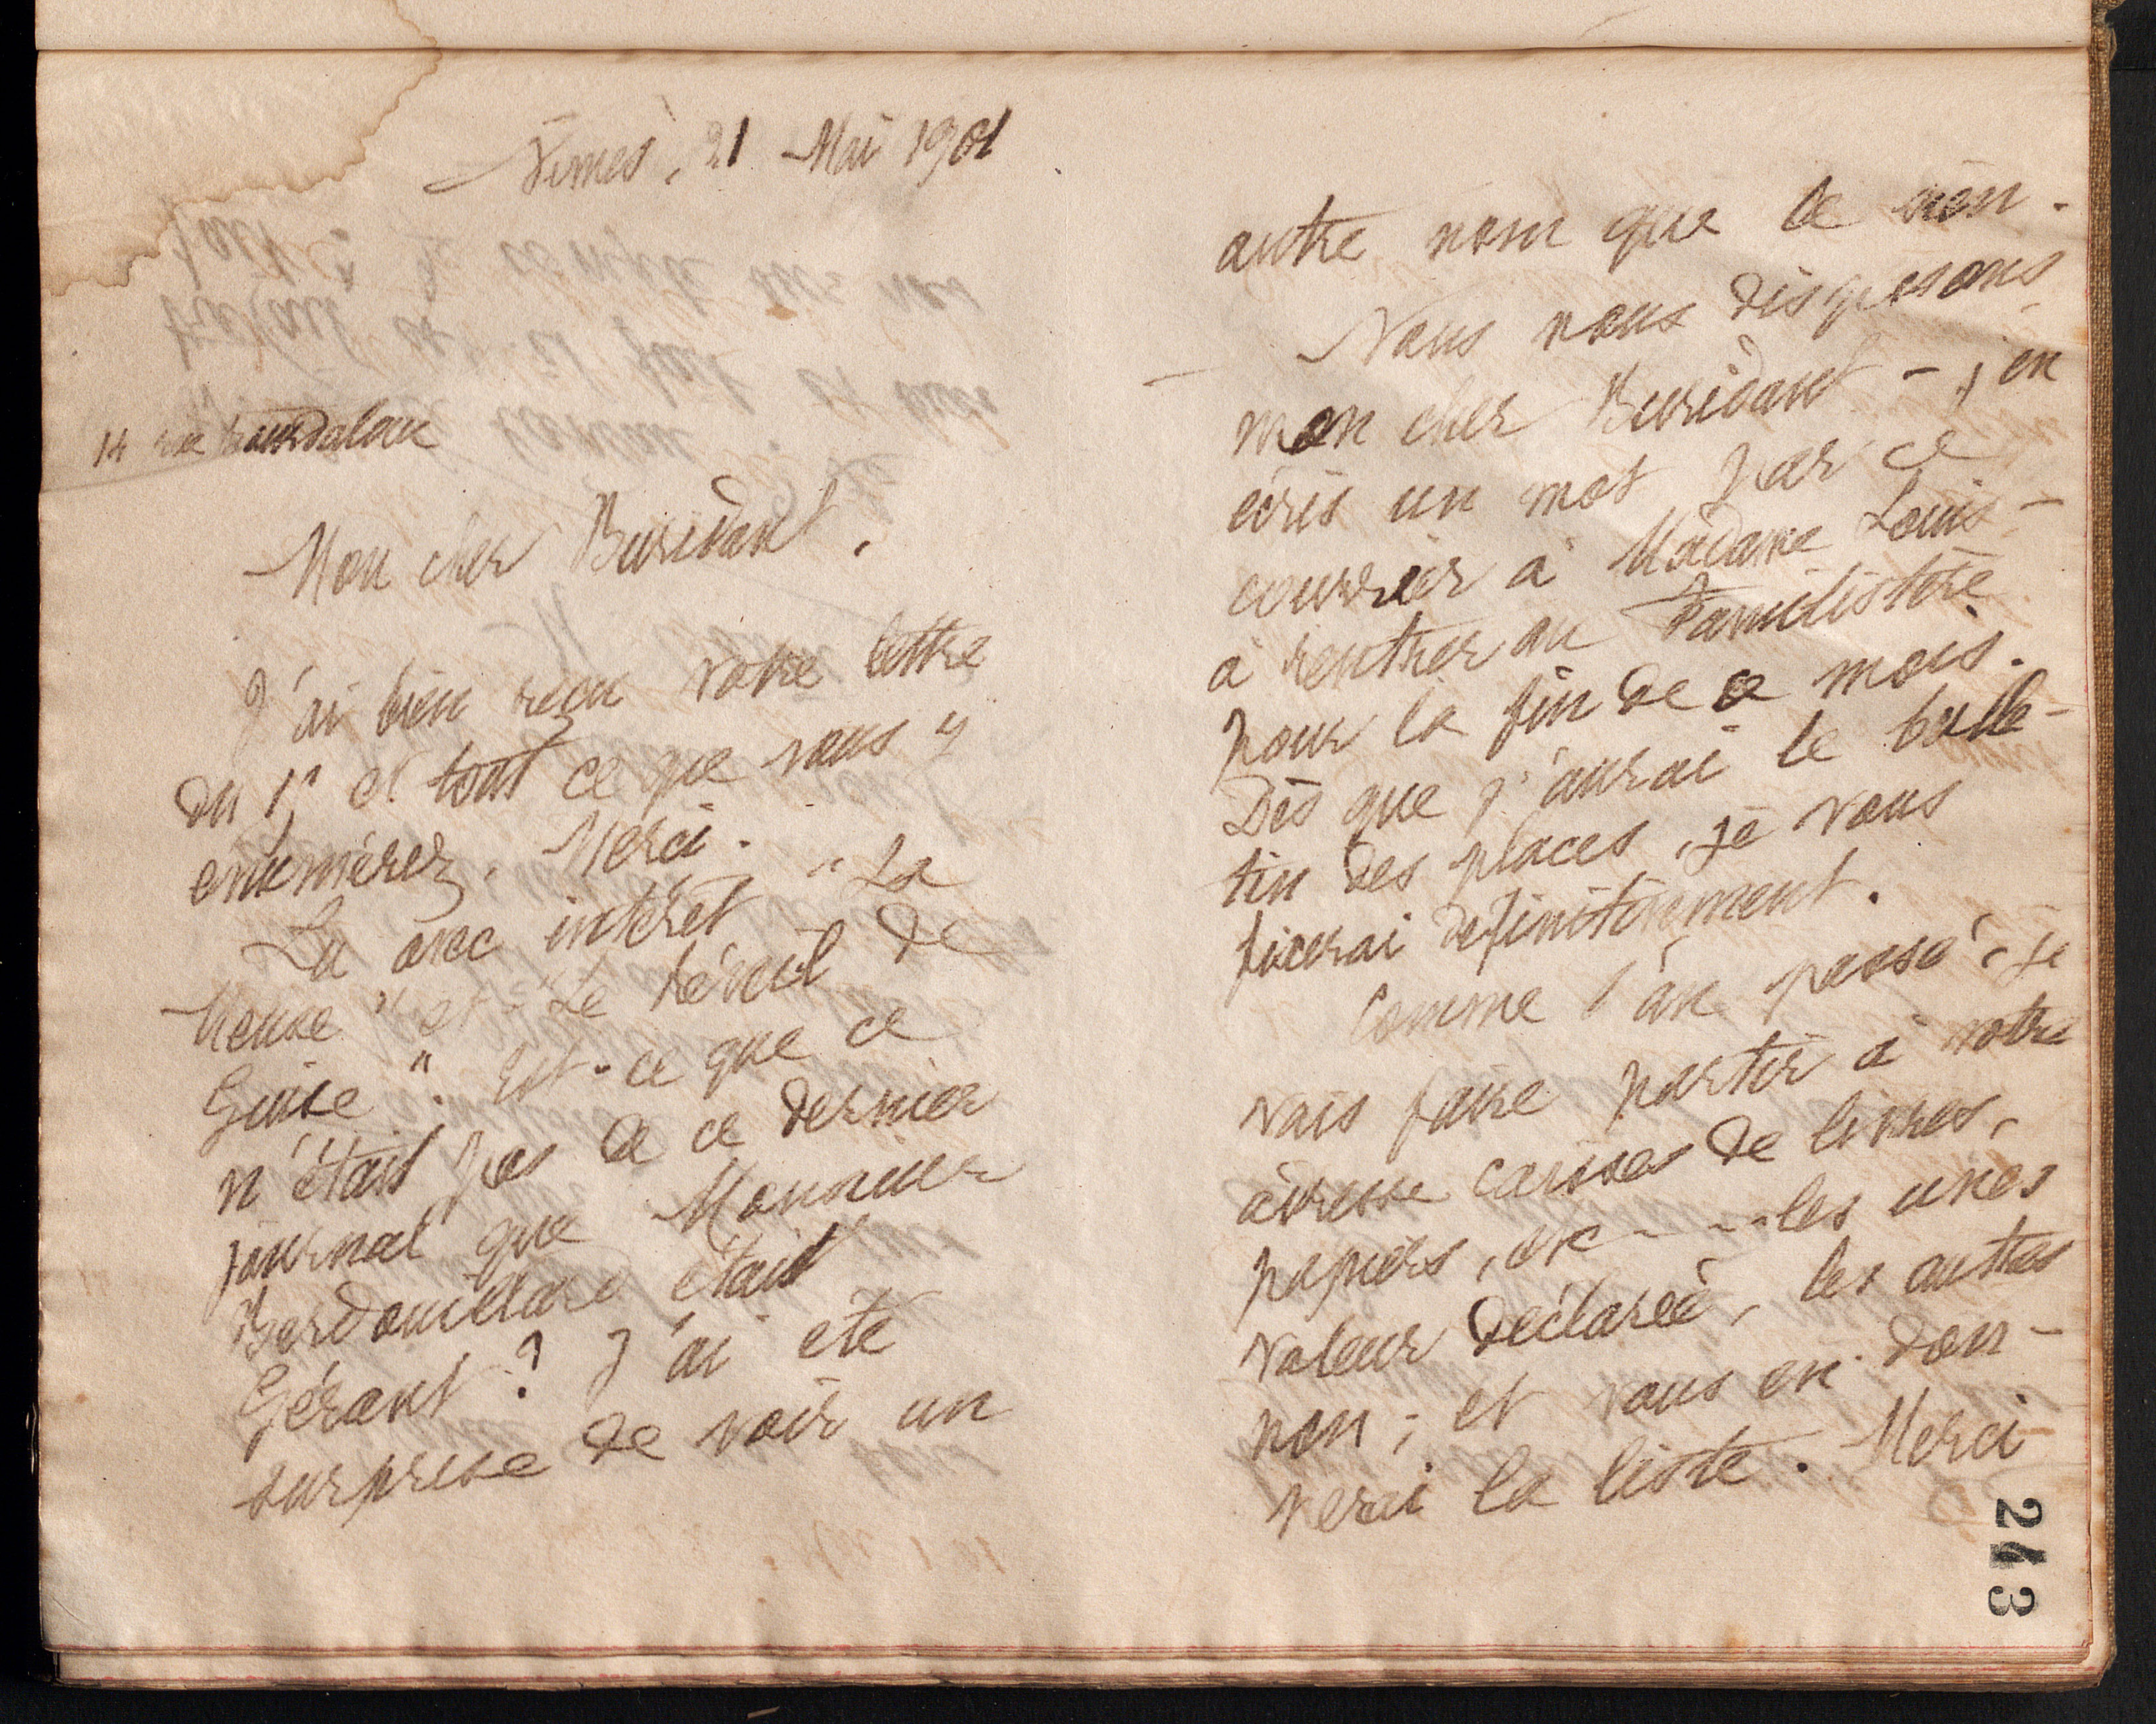 Nîmes, 21 Mai 1901
14 rue Bourdaloue
Mon cher Buridant,
J'ai bien reçu votre lettre
du 17 et tout ce que vous y
enumérez. Merci.
Lu avec intérêt "La
Meuse" et "Le Réveil de
Guise". Est-ce que ce
n'était pas de ce dernier
journal que Monnier
Berdouillard était
Gérant ? J'ai été
surprise de voir un
autre nom que le sien.
Nous nous disposons
mon cher Buridant - j'en
écris un mot par ce
courrier à Madame Louis -
à rentrer au Familistère
pour la fin de ce mois.
Dès que j'aurai le bulle-
tin des places, je vous
fixerai définitivement.
Comme l'an passé, je
vais faire partir à votre
adresse caisses de livres,
papiers, etc - - - les unes
valeur déclarée, les autres
non ; et vous en don-
nerai la liste. Merci
243